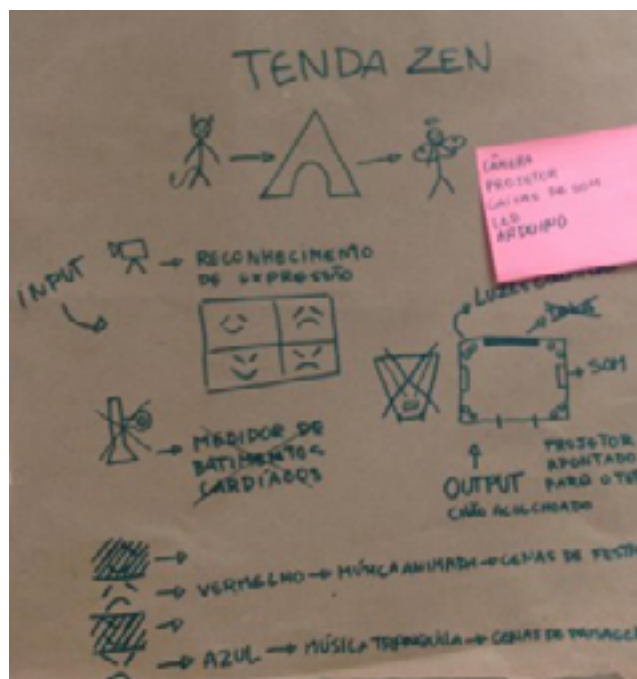 TENDA ZEN
CÂMERA
PROJETOR
CAIXAS DE SOM
LED
ARDUINO
INPUT
RECONHECIMENTO
DE EXPRESSÃO
SOM
MEDIDOR DE
BATIMENTOS
CARDÍACOS
PROJETOR
APONTADO
PARA O TE
OUTPUT
CHÃO ACOLCHOADO
VERMELHO → MÚSICA ANIMADA → CENAS DE FESTA
AZUL → MÚSICA TRANQUILA → CENAS DE PAISAGE